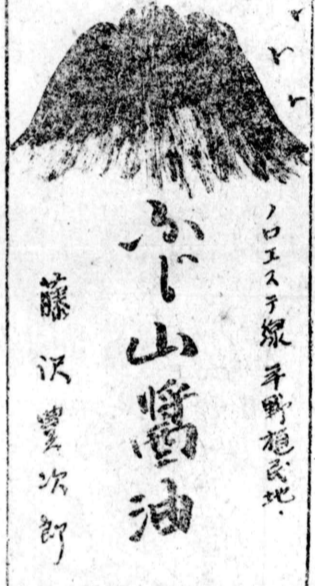 ノロエステ線 平野植民地・
ふじ山醤油
藤沢豊次郎